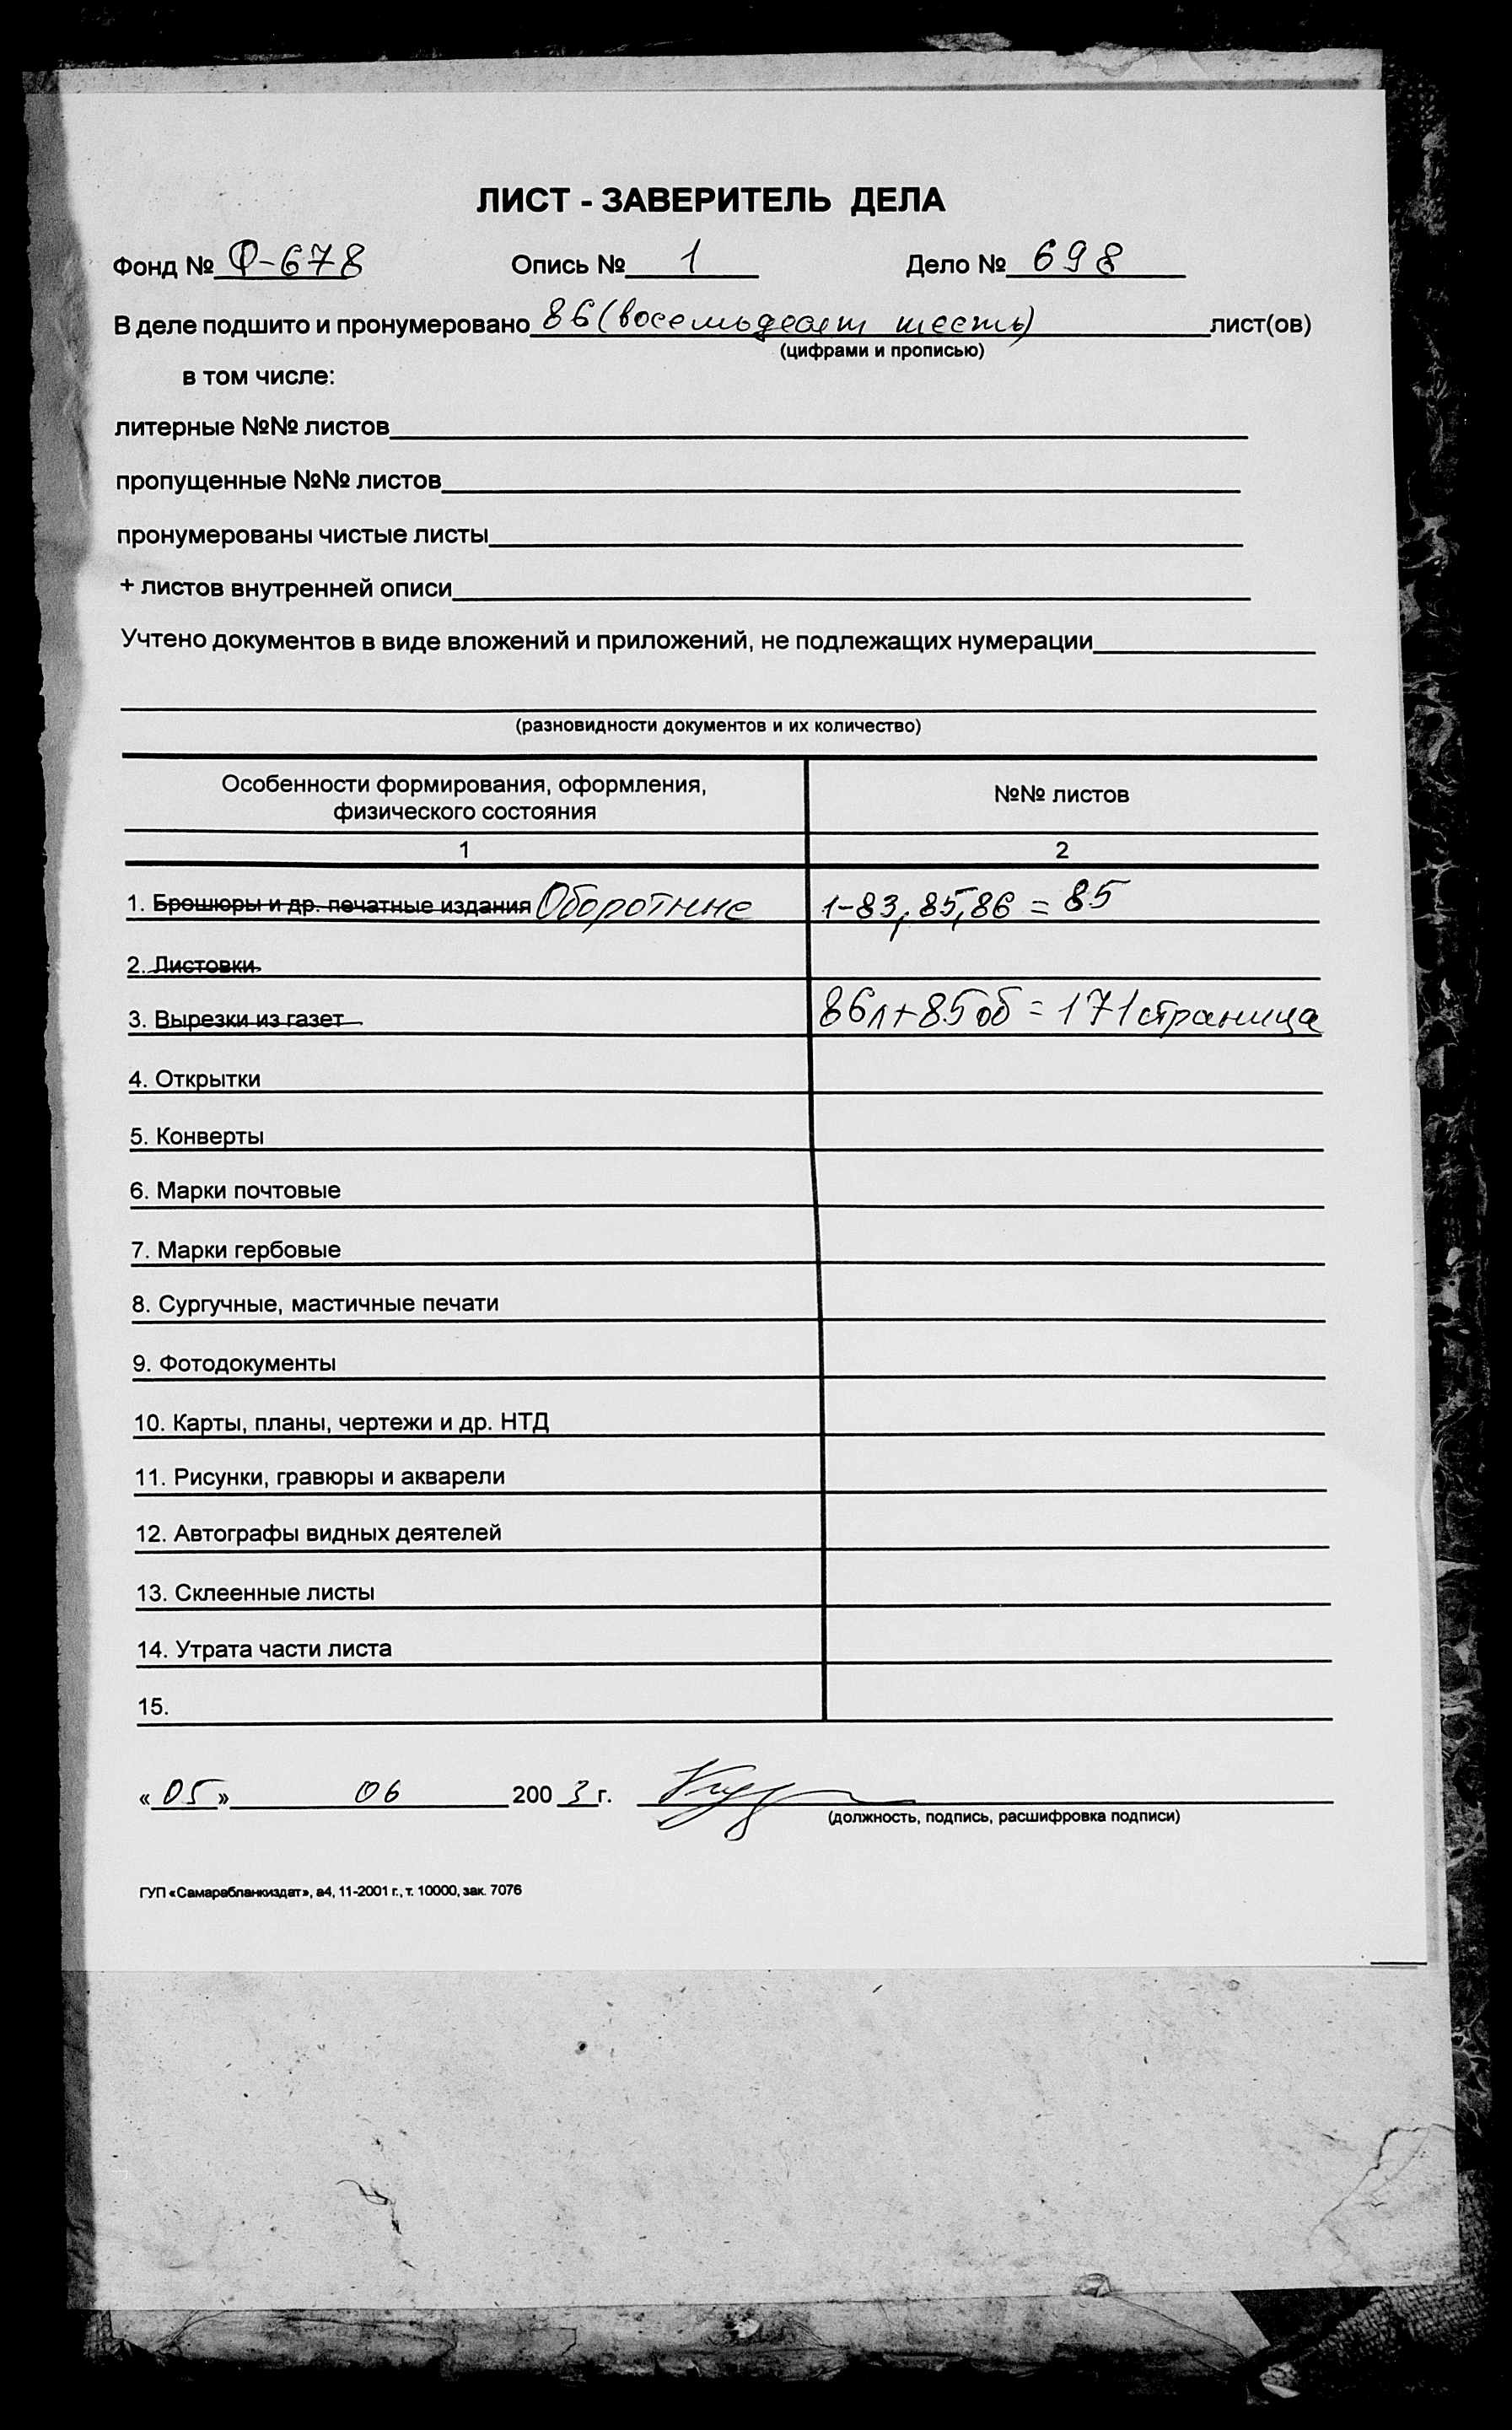 ЛИСТ - ЗАВЕРИТЕЛЬ ДЕЛА
Фонд № Ф-678 Опись № 1 Дело № 698
В деле подшито и пронумеровано 86 (восемьдесят шесть) лист(ов)
(цифрами и прописью)
в том числе:
литерные №№ листов
пропущенные №№ листов
пронумерованы чистые листы
+ листов внутренней описи
Учтено документов в виде вложений и приложений, не подлежащих нумерации
(разновидности документов и их количество)
Особенности формирования, оформления,
физического состояния
№№ листов
1 2
1. Брошюры и др. печатные издания Оборотные 1-83, 85, 86 = 85
2. Листовки
3. Вырезки из газет 86л + 85об = 171 страница
4. Открытки
5. Конверты
6. Марки почтовые
7. Марки гербовые
8. Сургучные, мастичные печати
9. Фотодокументы
10. Карты, планы, чертежи и др. НТД
11. Рисунки, гравюры и акварели
12. Автографы видных деятелей
13. Склеенные листы
14. Утрата части листа
15.
«05» 06 2003 г.
(должность, подпись, расшифровка подписи)
ГУП «Самарабланкиздат», а4, 11-2001 г., т. 10000, зак. 7076